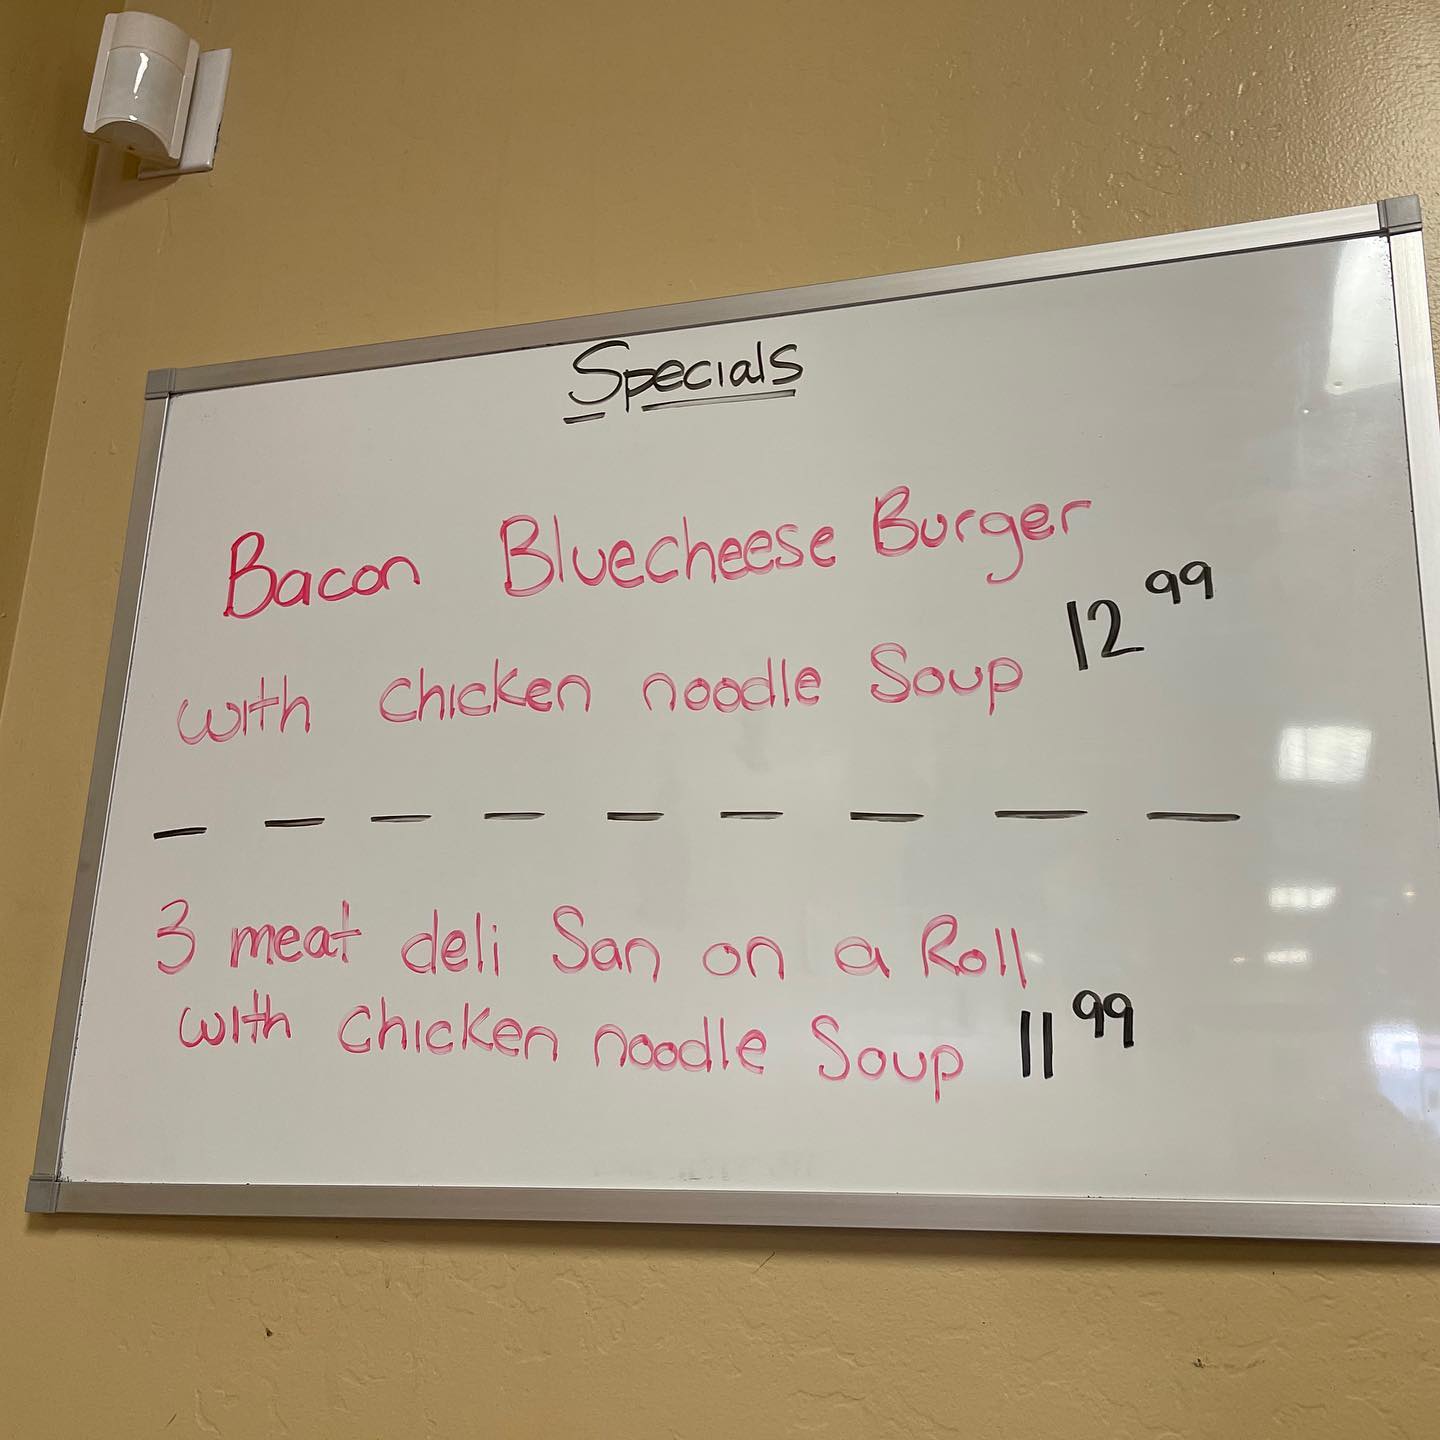 Specials
Bacon Bluecheese Burger
with chicken noodle Soup 12 99
3 meat deli San on a Roll
with chicken noodle Soup 11 99